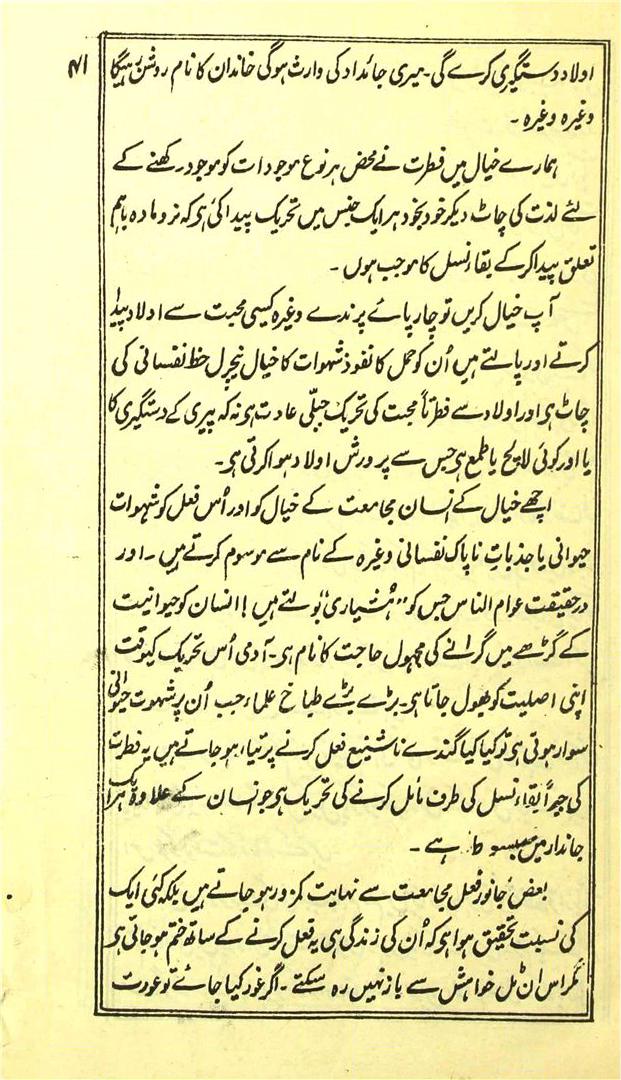 ۴۱
اولاد دستگیری کرے گی۔ میری جائداد کی وارث ہوگی خاندان کا نام روشن رہیگا
وغیرہ وغیرہ ۔
ہمارے خیال میں فطرت نے محض ہر نوع موجودات کو موجود رکھنے کے
لئے لذت کی چاٹ دیکر خود بخود ہر ایک جنس میں تحریک پیدا کی ہی کہ نر و مادہ باہم
تعلق پیدا کرکے بقاء نسل کا موجب ہوں۔
آپ خیال کریں تو چارپائے پرندے وغیرہ کیسی محبت سے اولاد پیدا
کرتے اور پالتے ہیں اُن کو حمل کا نفوذ شہوات کا خیال نیچرل حظ نفسانی کی
چاٹ ہی اور اولاد سے فطرتاً محبت کی تحریک جبلّی عادت ہی نہ کہ پیری کے دستگیری کا
یا اور کوئی لالچ یا طمع ہی جس سے پرورش اولاد ہوا کرتی ہی۔
اچھے خیال کے انسان مجامعت کے خیال کو اور اُس فعل کو شہوات
حیوانی یا جذبات ناپاک نفسانی وغیرہ کے نام سے موسوم کرتے ہیں ۔ اور
درحقیقت عوام الناس جس کو "ہُشیاری" بولتے ہیں ! انسان کو حیوانیت
کے گڑھے میں گرانے کی مجہول حاجت کا نام ہی۔ آدمی اُس تحریک کیوقت
اپنی اصلیت کو بھول جاتا ہی۔ بڑے بڑے علماء جب اُن پر شہوت حیوانی
سوار ہوتی ہی تو کیا کیا گندے ناشنیع فعل کرنے پر تیار ہو جاتے ہیں یہ فطرت
کی جبراً بقاء نسل کی طرف مائل کرنے کی تحریک ہی جو انسان کے علاوہ ہر ایک
جاندار میں مبسوط ہے ۔
بعض جانور فعل مجامعت سے نہایت کمزور ہو جاتے ہیں بلکہ کئی ایک
کی نسبت تحقیق ہوا ہی کہ اُن کی زندگی ہی یہ فعل کرنے کے ساتھ ختم ہو جاتی ہی
مگر اس ان مل خواہش سے باز نہیں رہ سکتے ۔ اگر غور کیا جائے تو عورت